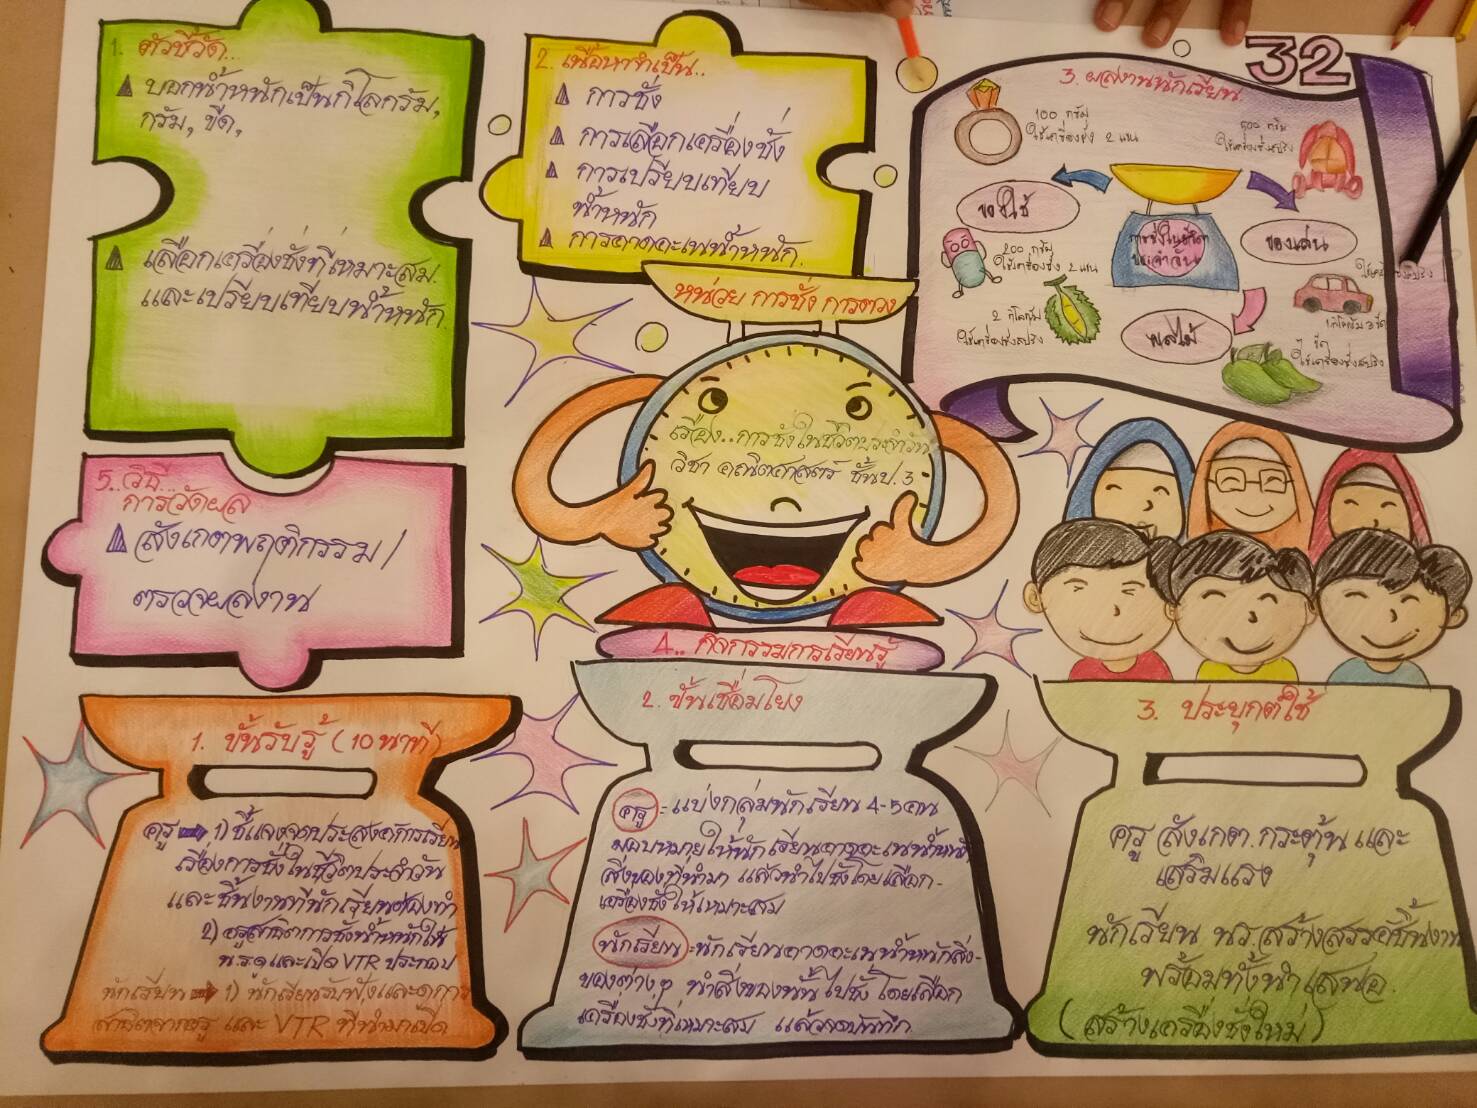 32
1. ตัวชี้วัด..
บอกน้ำหนักเป็นกิโลกรัม,
กรัม, ขีด,
เลือกเครื่องชั่งที่เหมาะสม
และเปรียบเทียบน้ำหนัก
2. เนื้อหาจำเป็น..
การชั่ง
การเลือกเครื่องชั่ง
การเปรียบเทียบ
น้ำหนัก
การคาดคะเนน้ำหนัก.
3. ผลงานนักเรียน
100 กรัม
ใช้เครื่องชั่ง 2 แขน
500 กรัม
ใช้เครื่องชั่งสปริง
ของใช้
การชั่งในชีวิต
ประจำวัน
ของเล่น
200 กรัม
ใช้เครื่องชั่ง 2 แขน
1 กิโลกรัม 3 ขีด
2 กิโลกรัม
ใช้เครื่องชั่งสปริง
ผลไม้
ขีด
ใช้เครื่องชั่งสปริง
หน่วย การชั่ง การตวง
เรื่อง..การชั่งในชีวิตประจำวัน
วิชา คณิตศาสตร์ ชั้นป.3
5. วิธี...
การวัดผล
สังเกตพฤติกรรม/
ตรวจผลงาน
4.. กิจกรรมการเรียนรู้
1. ขั้นรับรู้ (10 นาที)
ครู 1) ชี้แจงจุดประสงค์การเรียน
เรื่องการชั่งในชีวิตประจำวัน
และชิ้นงานที่นักเรียนต้องทำ
2) ครูสาธิตการชั่งน้ำหนักให้
น.ร.ดู และเปิด VTR ประกอบ
นักเรียน 1) นักเรียนรับฟังและดูการ
สาธิตจากครู และ VTR ที่นำมาเปิด
2. ขั้นเชื่อมโยง
ครู = แบ่งกลุ่มนักเรียน 4-5 คน
มอบหมายให้นักเรียนคาดคะเนน้ำหนัก
สิ่งของที่นำมา แล้วนำไปชั่งโดยเลือก-
เครื่องชั่งให้เหมาะสม
นักเรียน = นักเรียนคาดคะเนน้ำหนักสิ่ง-
ของต่างๆ นำสิ่งของนั้นไปชั่ง โดยเลือก
เครื่องชั่งที่เหมาะสม แล้วจดบันทึก
3. ประยุกต์ใช้
ครู สังเกต กระตุ้น และ
เสริมแรง
นักเรียน นร.สร้างสรรค์ชิ้นงาน
พร้อมทั้งนำเสนอ.
(สร้างเครื่องชั่งใหม่)